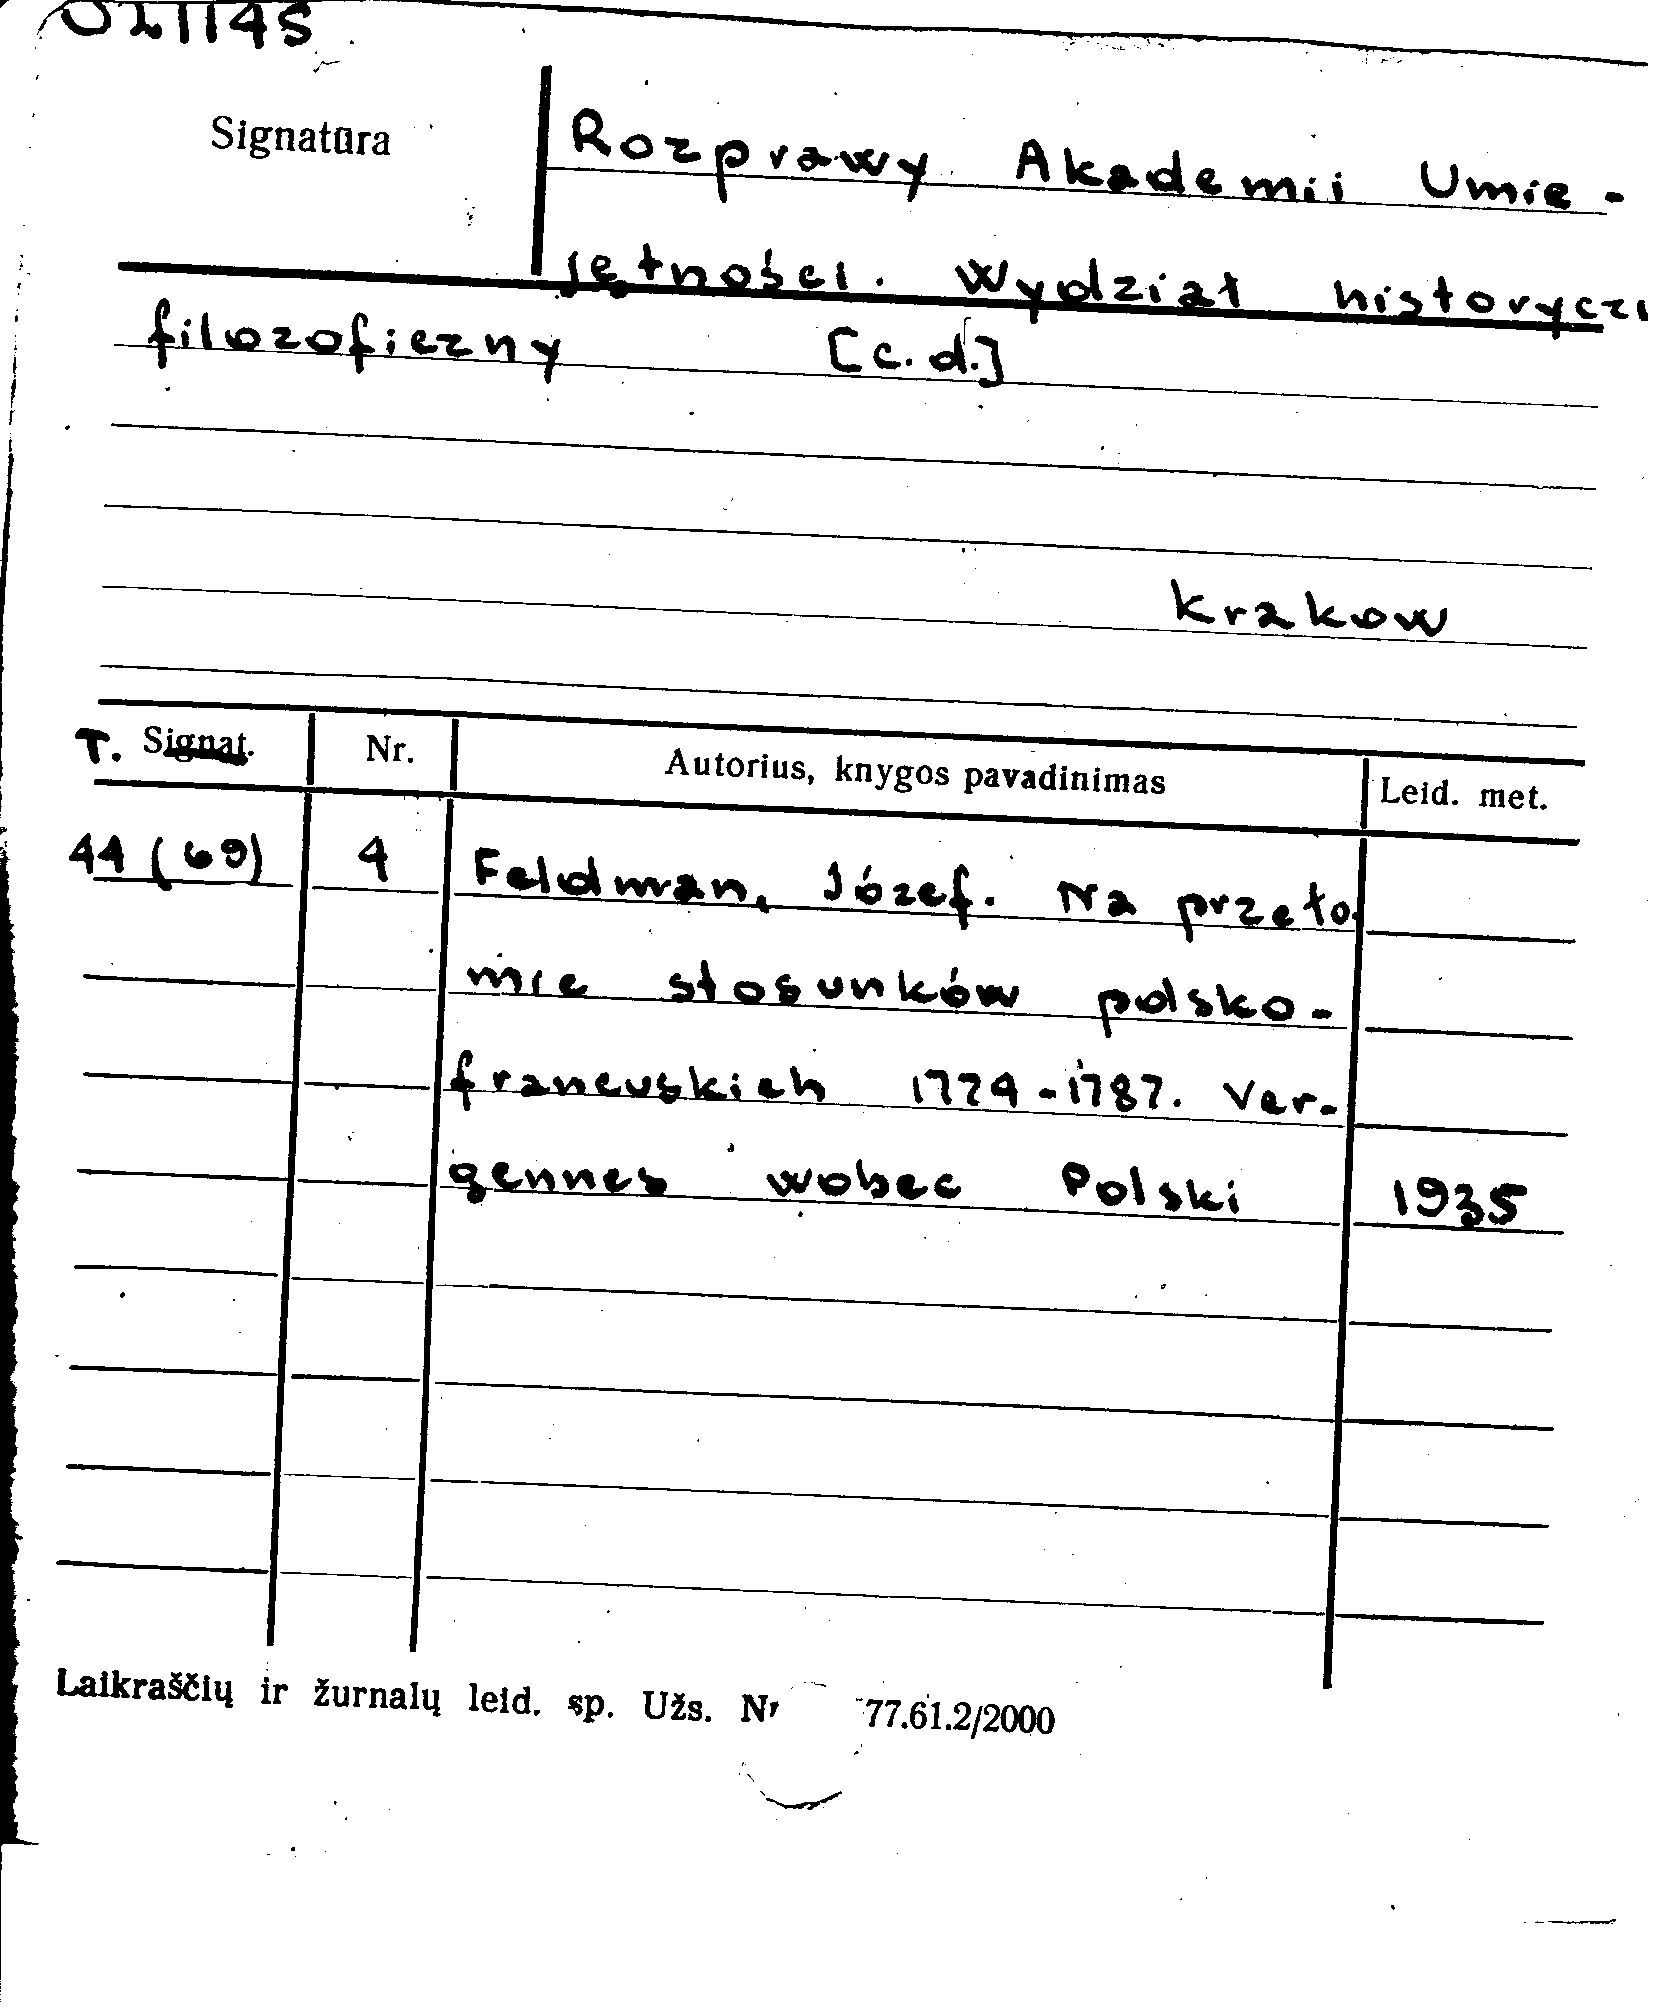 021145
Signatūra
Rozprawy Akademii Umie-
jętności. Wydział historyczn
filozoficzny [c.d.]
Krakow
T. Signat. Nr. Autorius, knygos pavadinimas Leid. met.
44 (69) 4 Feldman, Józef. Na przeło-
mie stosunków polsko-
francuskich 1774-1787. Ver-
gennes wobec Polski 1935
Laikraščių ir žurnalų leid. sp. Užs. Nr 77.61.2/2000